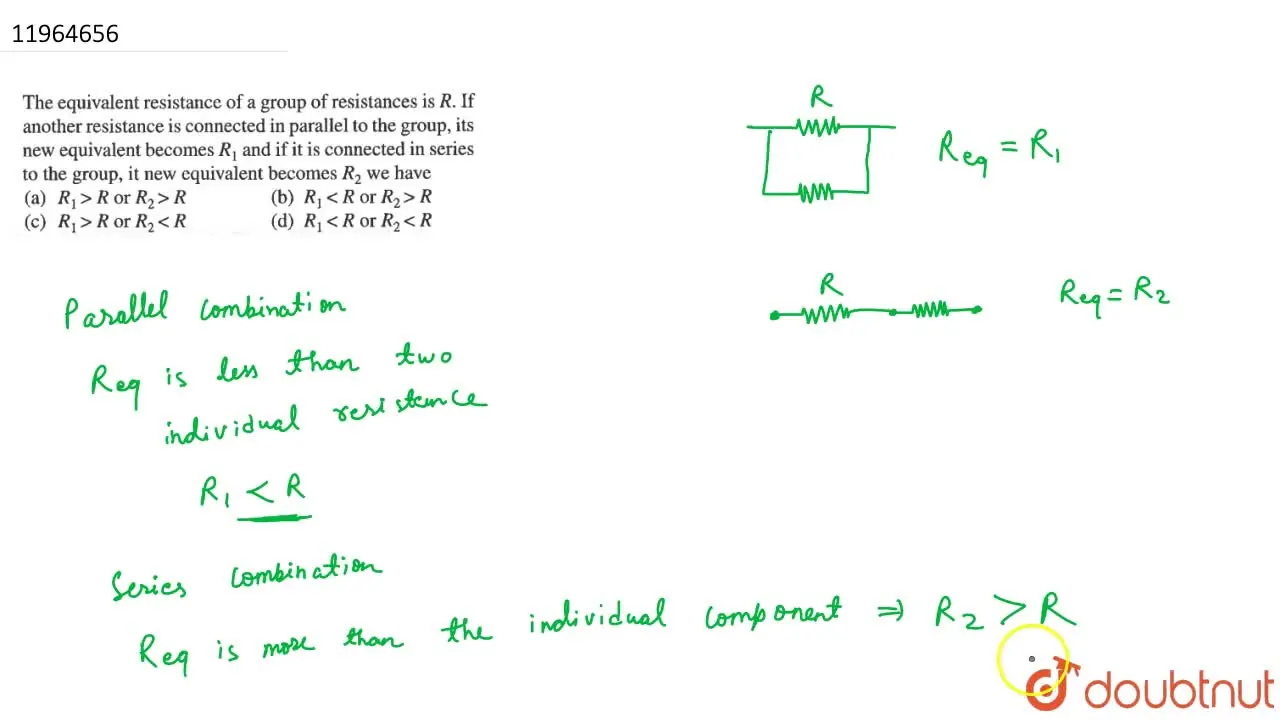 11964656
The equivalent resistance of a group of resistances is R. If
another resistance is connected in parallel to the group, its
new equivalent becomes R₁ and if it is connected in series
to the group, it new equivalent becomes R₂ we have
(a) R₁ > R or R₂ > R (b) R₁ < R or R₂ > R
(c) R₁ > R or R₂ < R (d) R₁ < R or R₂ < R
R
Req = R₁
R
Req = R₂
Parallel combination
Req is less than two
individual resistence
R₁ < R
Series combination
Req is more than the individual component ⇒ R₂ > R
doubtnut